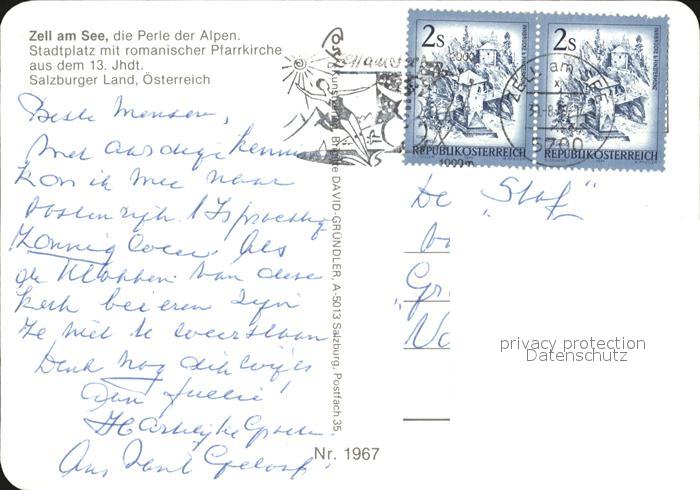 Zell am See, die Perle der Alpen.
Stadtplatz mit romanischer Pfarrkirche
aus dem 13. Jhdt.
Salzburger Land, Österreich
Beste Mensen,
Met aardige
kon ik mee naar
Oostenrijk. 't Is prachtig
zonnig weer. Als
de klokken van deze
kerk beieren zijn
ze niet te weerstaan
Denk nog dikwijls
aan jullie!
Hartelijke Groeten
2s
REPUBLIK ÖSTERREICH
2s
REPUBLIK ÖSTERREICH
5700
De "Staf"
Gr
privacy protection
Datenschutz
DAVID GRÜNDLER, A-5013 Salzburg, Postfach 35
Nr. 1967